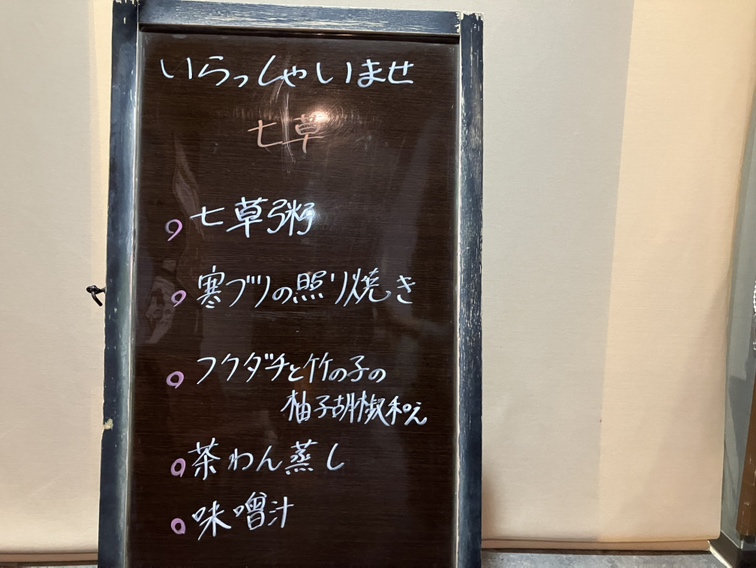 いらっしゃいませ
七草
七草粥
寒ブリの照り焼き
フクダチと竹の子の
柚子胡椒和え
茶わん蒸し
味噌汁